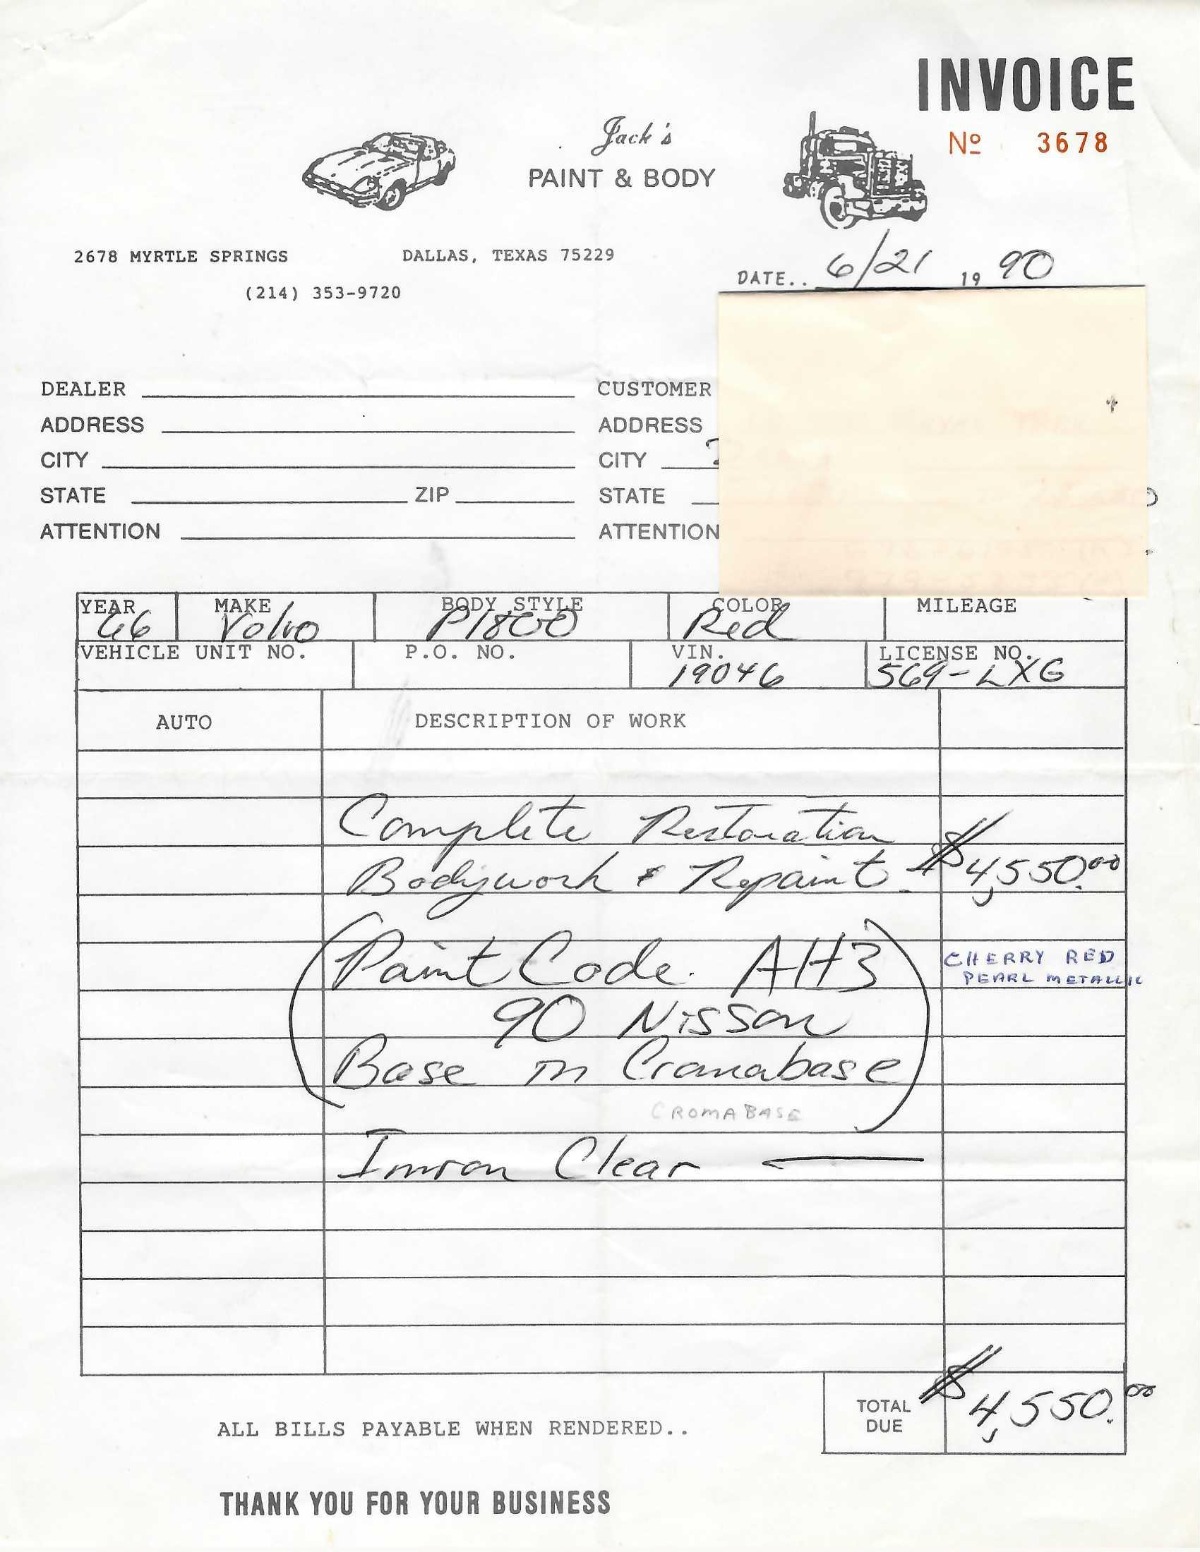 INVOICE
Nº 3678
Jack's
PAINT & BODY
2678 MYRTLE SPRINGS DALLAS, TEXAS 75229
(214) 353-9720
DATE.. 6/21 19 90
DEALER CUSTOMER
ADDRESS ADDRESS
CITY CITY
STATE ZIP STATE
ATTENTION ATTENTION
YEAR MAKE BODY STYLE COLOR MILEAGE
66 Volvo P1800 Red
VEHICLE UNIT NO. P.O. NO. VIN. LICENSE NO.
19046 569-LXG
AUTO DESCRIPTION OF WORK
Complete Restoration
Bodywork & Repaint $4,550.00
(Paint Code AH3 CHERRY RED
PEARL METALLIC
90 Nissan
Base in Cromabase)
CROMABASE
Imron Clear ←
TOTAL
DUE $4,550.00
ALL BILLS PAYABLE WHEN RENDERED..
THANK YOU FOR YOUR BUSINESS